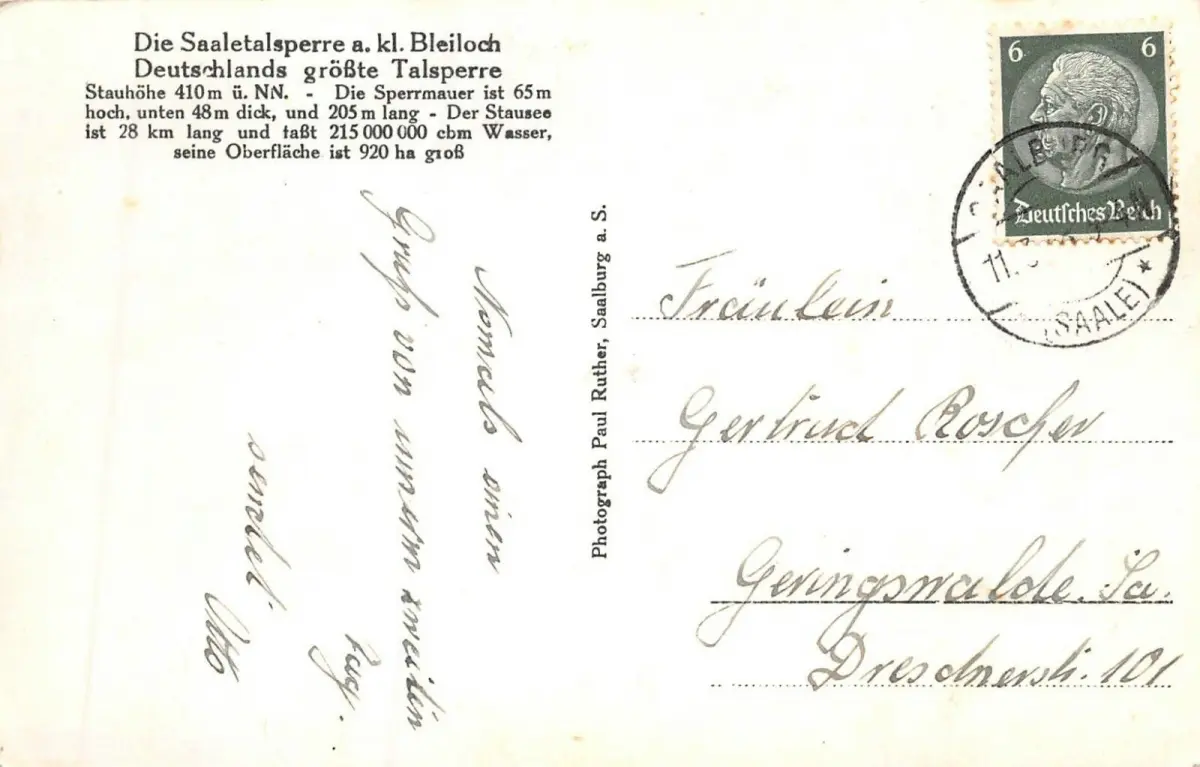 Die Saaletalsperre a. kl. Bleiloch
Deutschlands größte Talsperre
Stauhöhe 410 m ü. NN. - Die Sperrmauer ist 65 m
hoch, unten 48 m dick, und 205 m lang - Der Stausee
ist 28 km lang und faßt 215 000 000 cbm Wasser,
seine Oberfläche ist 920 ha groß
Nomals einen
Gruß von unserm zweiten
Tag.
sendet.
Otto
Photograph Paul Ruther, Saalburg a. S.
6 6
Deutsches Reich
SAALBURG
11.
(SAALE) *
Fräulein
Gertrud Roscher
Geringswalde. Sa.
Dresdnerstr. 101